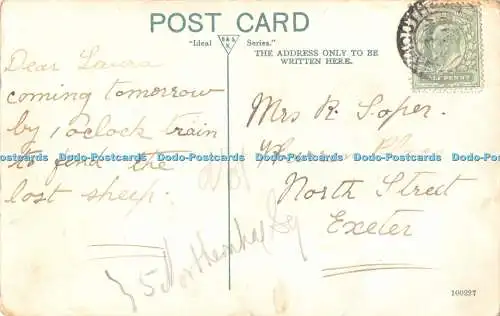 POST CARD
"Ideal Series."
B&S
THE ADDRESS ONLY TO BE
WRITTEN HERE.
HALFPENNY
Dear Laura
coming tomorrow
by 1 oclock train
to find the
lost sheep.
Mrs R. Soper.
North Street
Exeter
Dodo-Postcards Dodo-Postcards Dodo-Postcards Dodo-Postcards Dodo-Postcards Dodo-Postcards
35 Northernhay Sq
100297